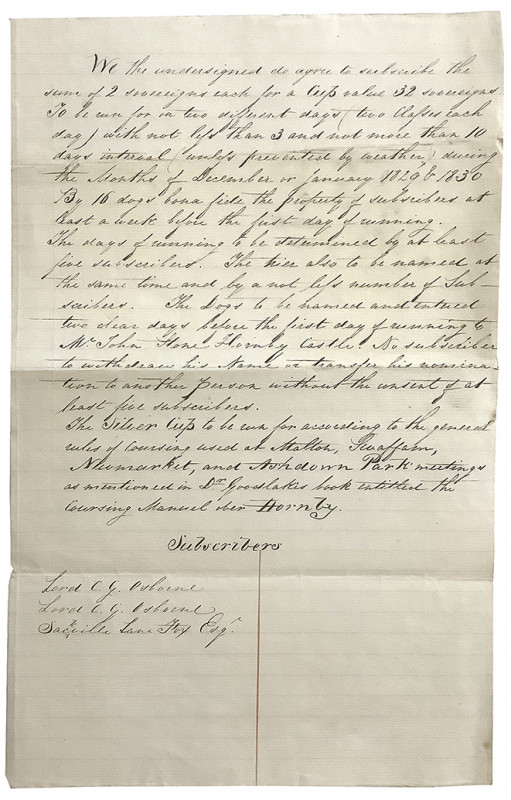 We the undersigned do agree to subscribe the
sum of 2 sovereigns each for a Cup value 32 sovereigns
To be run for on two different days (two Classes each
day) with not less than 3 and not more than 10
days interval (unless prevented by weather) during
the Months of December or January 1829 & 1830
By 16 dogs bona fide the property of subscribers at
least a week before the first day of running.
The days of running to be determined by at least
five subscribers. The trier also to be named at
the same time and by a not less number of Sub-
scribers. The Dogs to be named and entered
two clear days before the first day of running to
Mr John Stone Hornby Castle. No subscriber
to withdraw his Name or transfer his nomina-
tion to another person without the consent of at
least five subscribers.
The Silver Cup to be run for according to the general
rules of Coursing used at Malton, Swaffam,
Newmarket, and Ashdown Park meetings
as mentioned in Dr Goodlakes book entitled the
Coursing Manuel over Hornby.
Subscribers
Lord C. G. Osborne
Lord C. G. Osborne
Sackville Lane Fox Esqr.